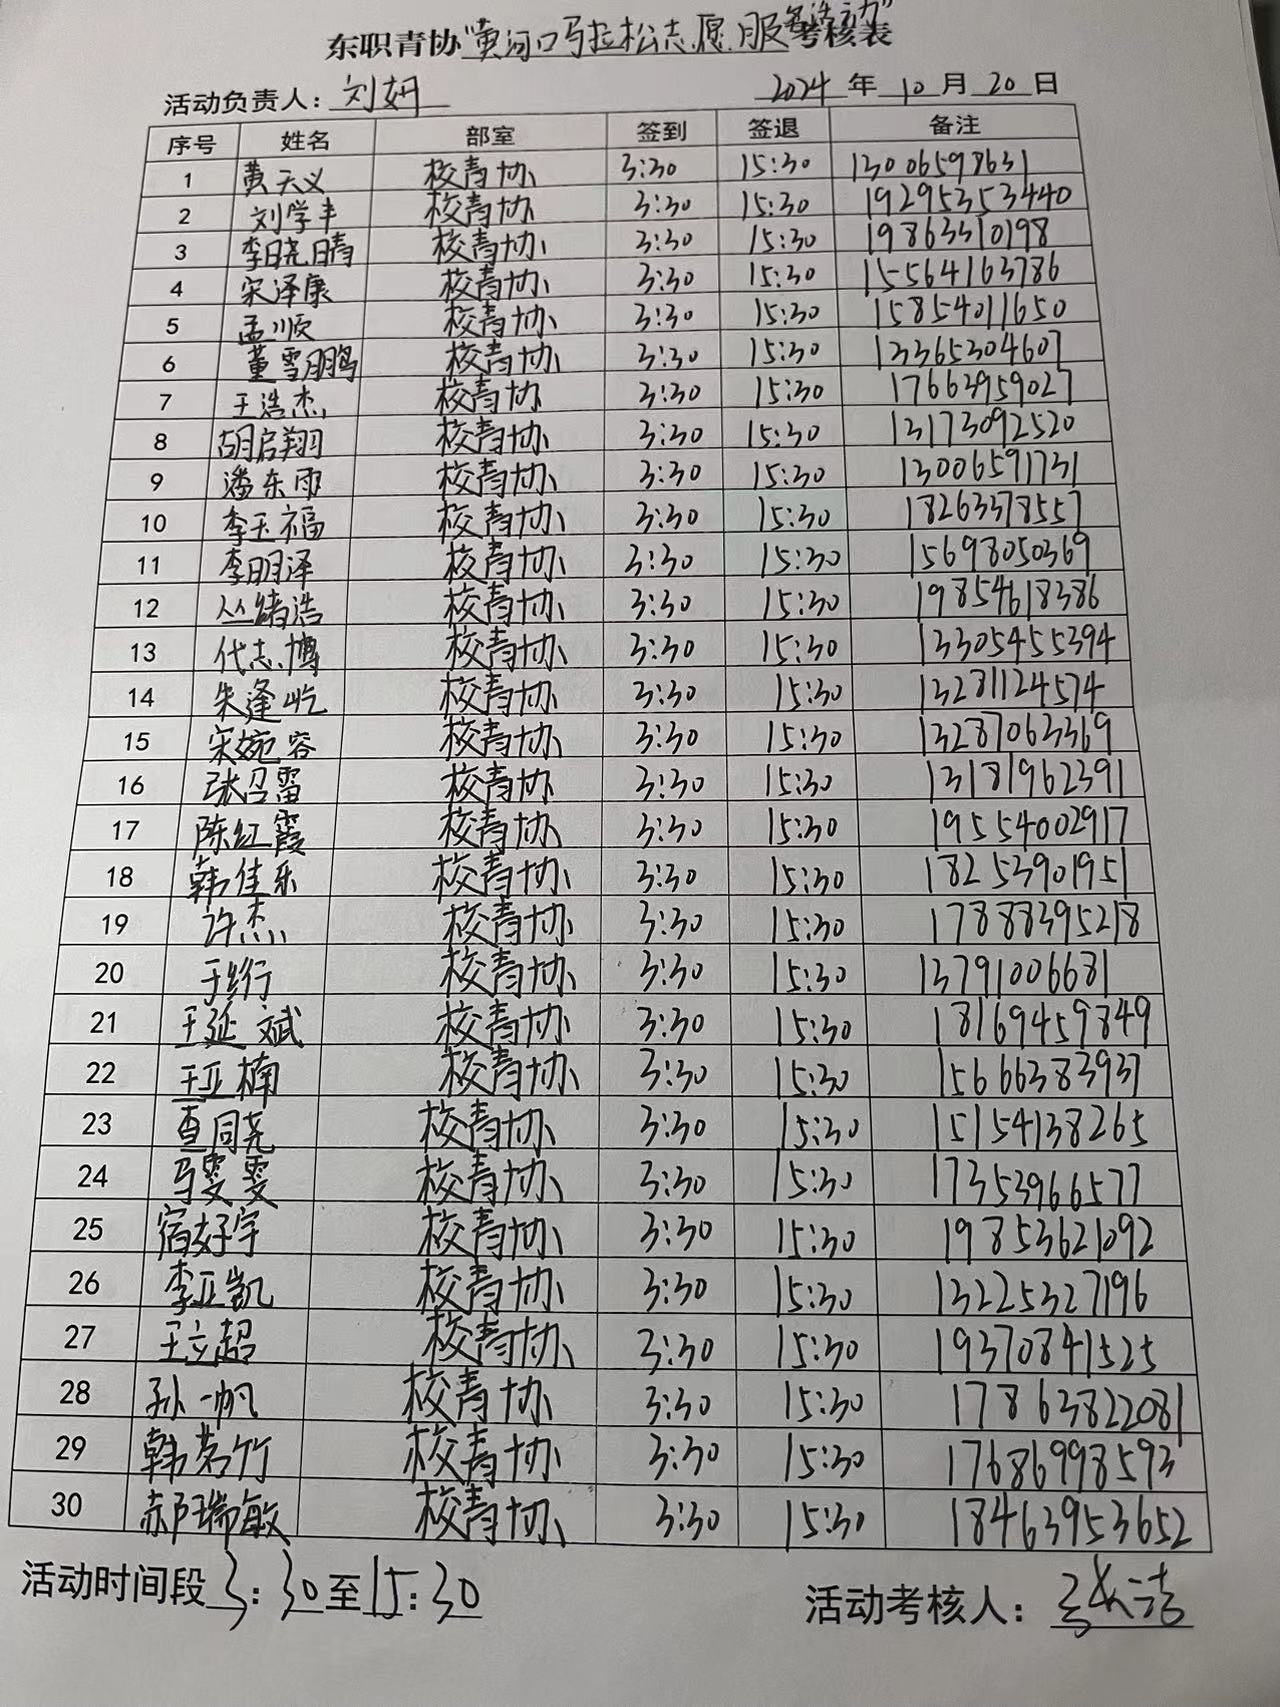 东职青协"黄河口马拉松志愿服务活动"考核表
活动负责人：刘妍 2024年10月20日
序号 姓名 部室 签到 签退 备注
1 黄天义 校青协 3:30 15:30 13006598631
2 刘学丰 校青协 3:30 15:30 19295353440
3 李晓晴 校青协 3:30 15:30 19863310198
4 宋泽康 校青协 3:30 15:30 15564163786
5 孟顺 校青协 3:30 15:30 15854011650
6 董雪鹏 校青协 3:30 15:30 13365304607
7 王浩杰 校青协 3:30 15:30 17663959027
8 胡启翔 校青协 3:30 15:30 13173092520
9 潘东雨 校青协 3:30 15:30 13006591731
10 李玉福 校青协 3:30 15:30 18263378557
11 李明泽 校青协 3:30 15:30 15698050369
12 丛绪浩 校青协 3:30 15:30 19854618386
13 代志博 校青协 3:30 15:30 13305455394
14 朱逢屹 校青协 3:30 15:30 13281124574
15 宋婉容 校青协 3:30 15:30 13287063369
16 张召雷 校青协 3:30 15:30 13181962391
17 陈红霞 校青协 3:30 15:30 19554002917
18 韩佳乐 校青协 3:30 15:30 18253901951
19 许杰 校青协 3:30 15:30 17888395218
20 于绗 校青协 3:30 15:30 13791006681
21 王延斌 校青协 3:30 15:30 18169459849
22 王亚楠 校青协 3:30 15:30 15666383937
23 查同尧 校青协 3:30 15:30 15154138265
24 马雯雯 校青协 3:30 15:30 17353966577
25 宿好宇 校青协 3:30 15:30 19853621092
26 李亚凯 校青协 3:30 15:30 13225327196
27 王立超 校青协 3:30 15:30 19370841525
28 孙一帆 校青协 3:30 15:30 17863822081
29 韩茗竹 校青协 3:30 15:30 17686998593
30 郝瑞敏 校青协 3:30 15:30 18463953652
活动时间段3:30至15:30 活动考核人：